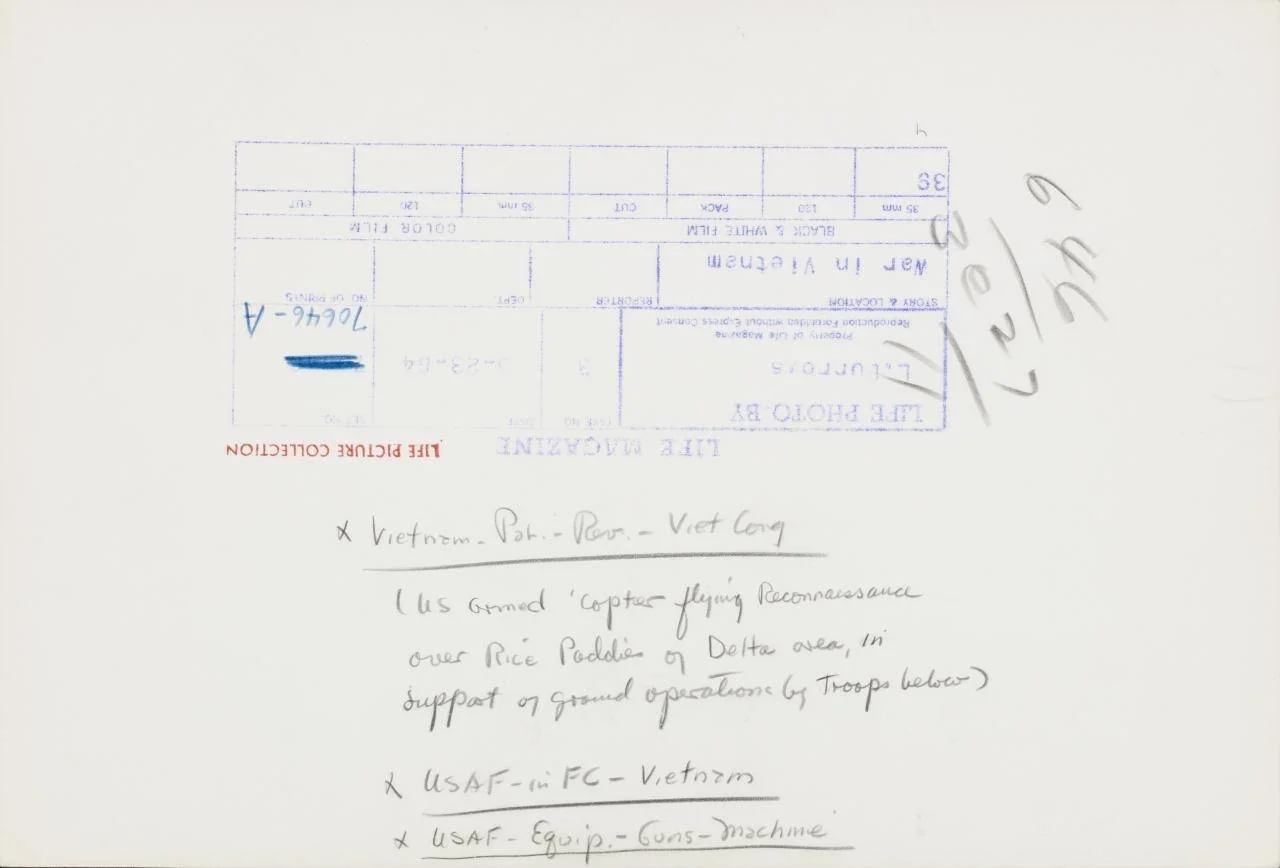 x Vietnam - Pol. - Rev. - Viet Cong
(US armed 'copter flying Reconnaissance
over Rice Paddies of Delta area, in
support of ground operations by Troops below)
x USAF - in FC - Vietnam
x USAF - Equip. - Guns - Machine
LIFE MAGAZINE
LIFE PICTURE COLLECTION
LIFE PHOTO BY
SET NO.
L. Burrows
3
-23-64
Property of Life Magazine
Reproduction Forbidden without Express Consent
70646-A
STORY & LOCATION REPORTER DEPT. NO OF PRINTS
War in Vietnam
BLACK & WHITE FILM COLOR FILM
35 mm 120 PACK CUT 35 mm 120 CUT
39